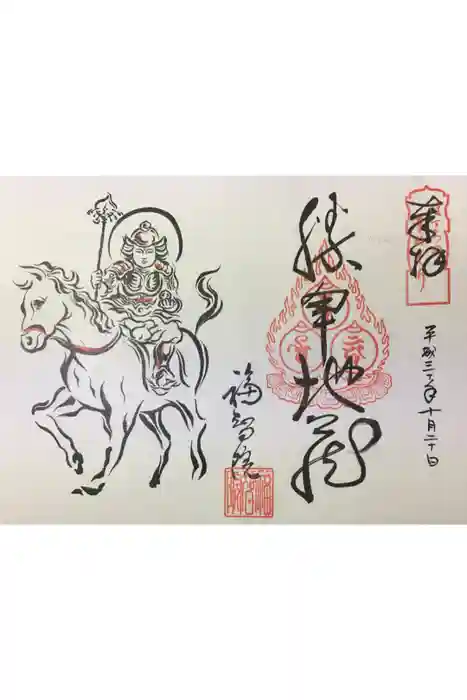 奉拝
平成三〇年十月二十日
勝軍地蔵
福智院